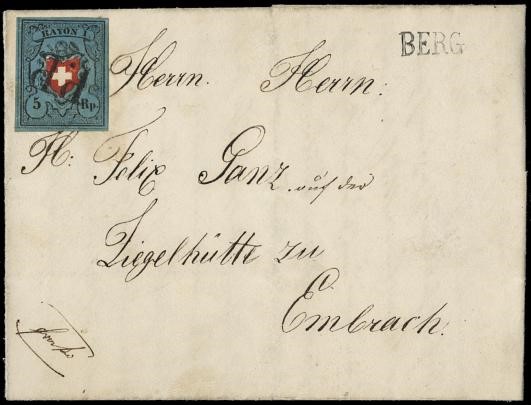 RAYON I
5 Rp.
BERG
Herrn Herrn:
H: Felix Ganz auf der
Ziegelhütte zu
Embrach.
franko